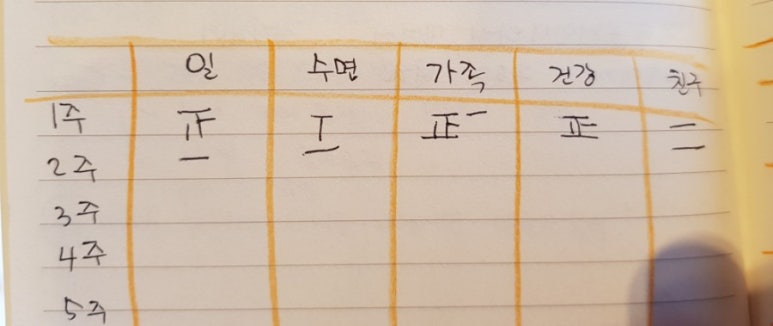 일 수면 가족 건강 친구
1주 正 正一 正 二
2주
3주
4주
5주